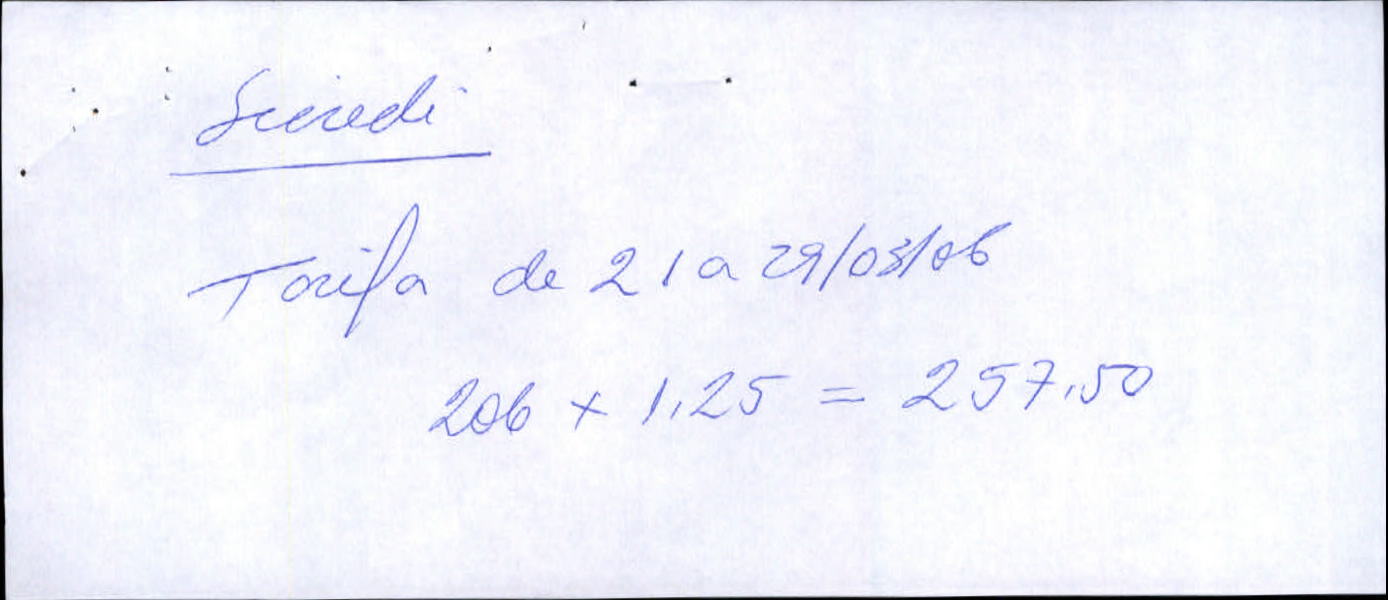 Sicredi
Tarifa de 21 a 29/03/06
206 x 1,25 = 257,50